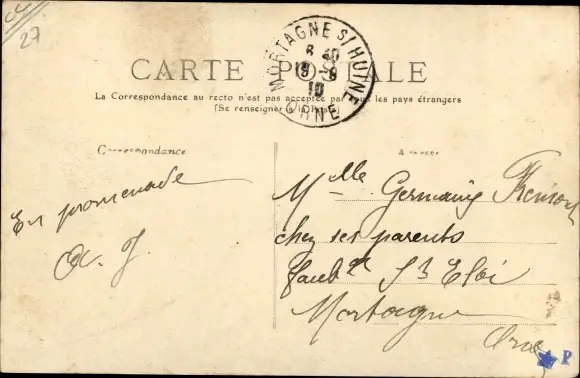 27
CARTE POSTALE
MORTAGNE S/HUINE
8 40
19 - 9
10
ORNE
La Correspondance au recto n'est pas acceptée par tous les pays étrangers
(Se renseigner à la Poste)
Correspondance
Adresse
En promenade
Mlle Germaine
chez ses parents
faubg St Eloi
Mortagne
Orne
P